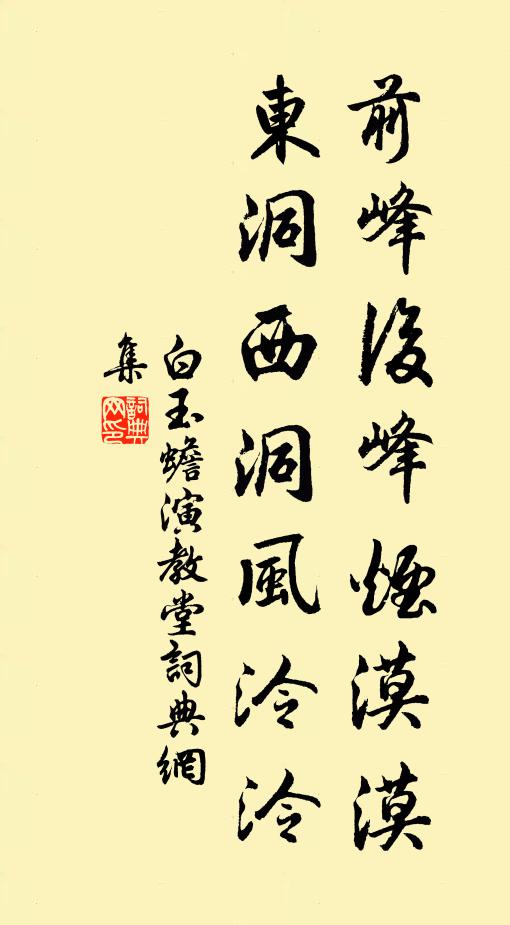 前峰後峰煙漠漠
東洞西洞風泠泠
白玉蟾演教堂詞典網
集
詞典
网印